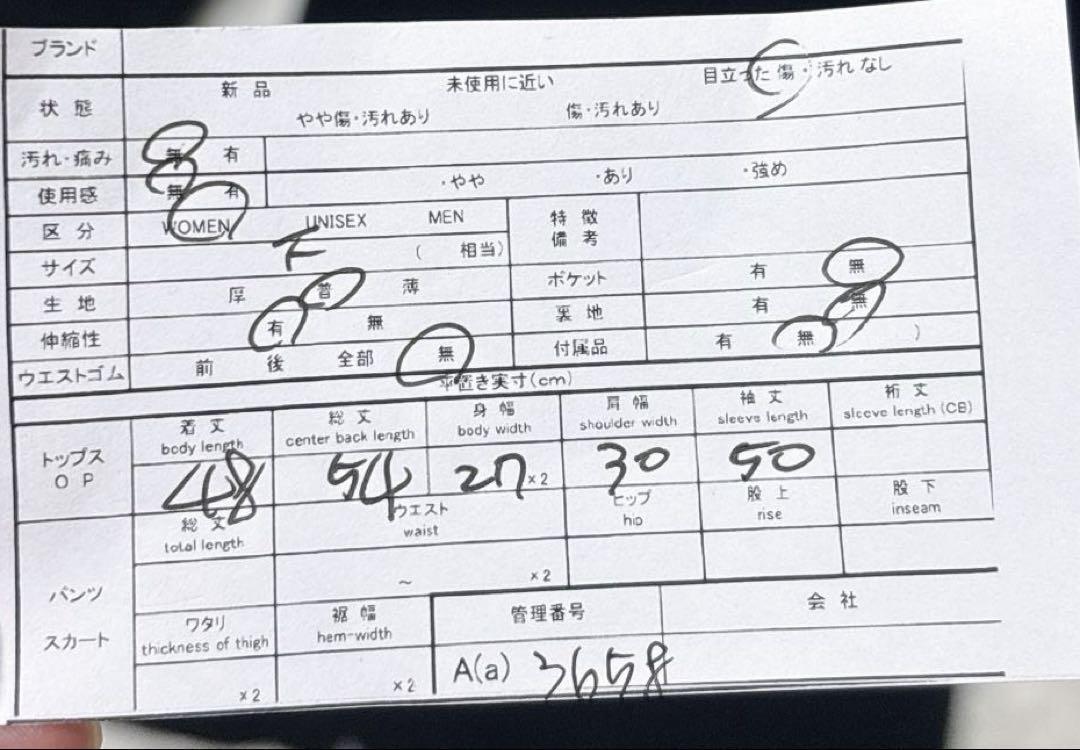 ブランド
状態 新品 未使用に近い 目立った傷・汚れなし
やや傷・汚れあり 傷・汚れあり
汚れ・痛み 無 有
使用感 無 有 ・やや ・あり ・強め
区分 WOMEN UNISEX MEN 特徴備考
サイズ F ( 相当)
生地 厚 普 薄 ポケット 有 無
伸縮性 有 無 裏地 有 無
ウエストゴム 前 後 全部 無 付属品 有 無 )
平置き実寸(cm)
着丈 総丈 身幅 肩幅 袖丈 裄丈
body length center back length body width shoulder width sleeve length sleeve length (CB)
トップス
OP
48 54 27 ×2 30 50
総丈 ウエスト ヒップ 股上 股下
total length waist hip rise inseam
パンツ
スカート
~ ×2
ワタリ 裾幅 管理番号 会社
thickness of thigh hem-width
×2 ×2 A(a) 3658